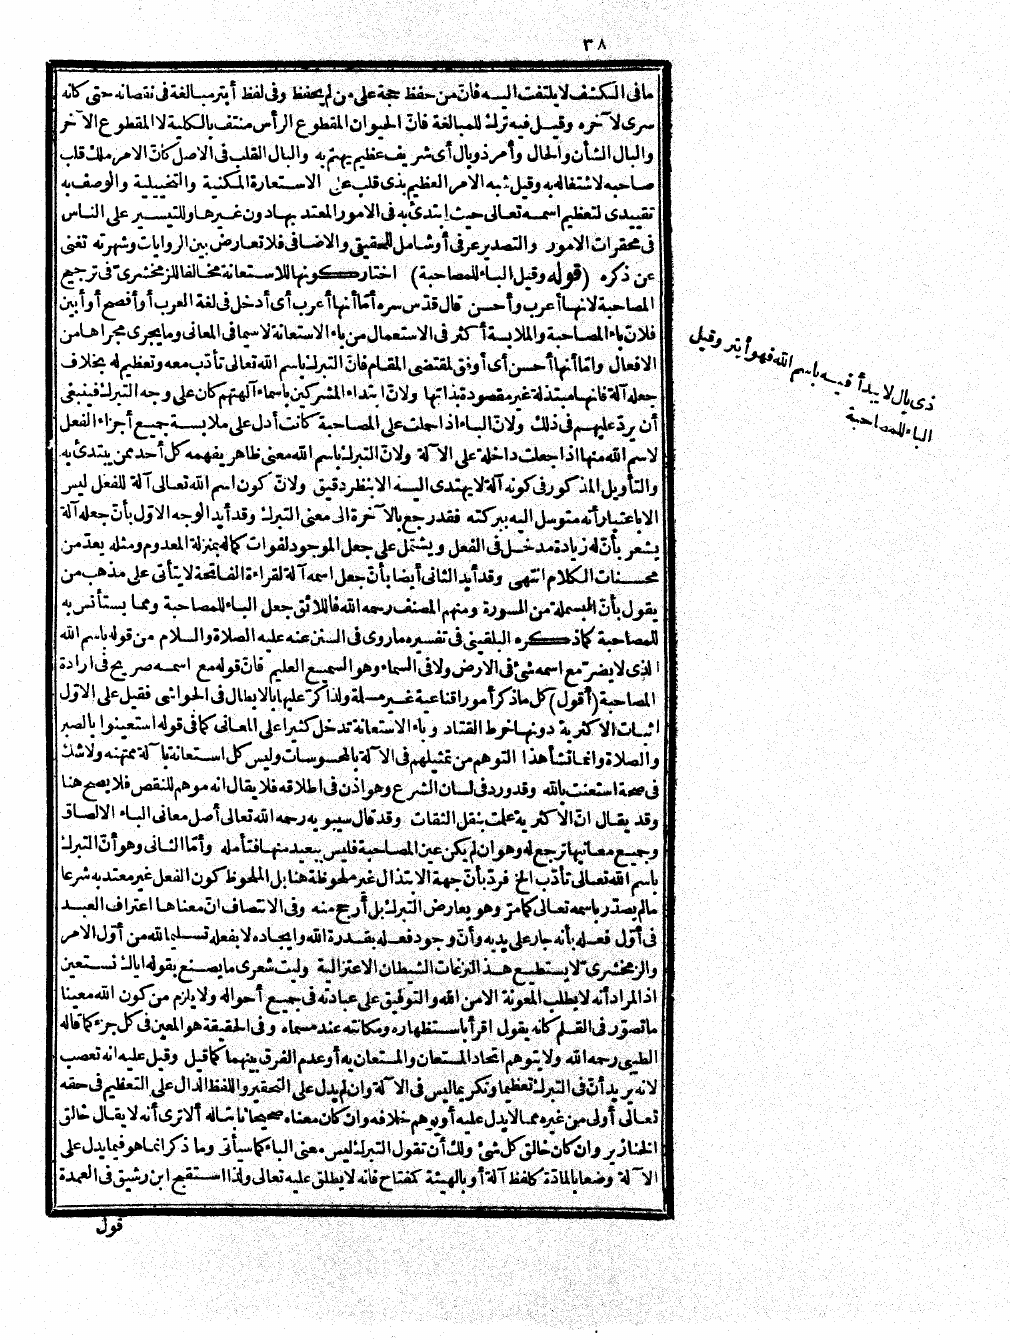 ٣٨
ما فى الكشف لا يلتفت اليه فانّ من حفظ حجة على من لم يحفظ وفى لفظ أبتر مبالغة فى نقصانه حتى كانه
سرى لآخره وقيل فيه ترك للمبالغة فانّ الحيوان المقطوع الرأس منتف بالكلية لا المقطوع الآخر
والبال الشأن والحال وأمر ذو بال أى شريف عظيم يهتم به والبال القلب فى الاصل كانّ الامر ملك قلب
صاحبه لاشتغاله به وقيل شبه الامر العظيم بذى قلب على الاستعارة المكنية والتخييلية والوصف به
تقييدى لتعظيم اسمه تعالى حيث ابتدئ به فى الامور المعتد بها دون غيرها وللتيسير على الناس
فى محقرات الامور والتصدير عرفى أو شامل للحقيقى والاضافى فلا تعارض بين الروايات وشهرته تغنى
عن ذكره (قوله وقيل الباء للمصاحبة) اختار كونها للاستعانة مخالفا للزمخشرىّ فى ترجيح
المصاحبة لانها أعرب وأحسن قال قدّس سره أمّا أنها أعرب أى أدخل فى لغة العرب أو أفصح أو أبين
فلانّ باء المصاحبة والملابسة أكثر فى الاستعمال من باء الاستعانة لا سيما فى المعانى وما يجرى مجراها من
الافعال وامّا أنها أحسن أى أوفق لمقتضى المقام فانّ التبرك باسم الله تعالى تأدّب معه وتعظيم له بخلاف
جعله آلة فانها مبتذلة غير مقصودة بذاتها ولانّ ابتداء المشركين باسماء آلهتهم كان على وجه التبرك فينبغى
أن يردّ عليهم فى ذلك ولانّ الباء اذا حملت على المصاحبة كانت أدل على ملابسة جميع أجزاء الفعل
لاسم الله منها اذا جعلت داخلة على الآلة ولانّ التبرك باسم الله معنى ظاهر يفهمه كل أحد ممن يبتدئ به
والتأويل المذكور فى كونه آلة لا يهتدى اليه الا بنظر دقيق ولانّ كون اسم الله تعالى آلة للفعل ليس
الا باعتبار أنه متوسل اليه ببركته فقد رجع بالآخرة الى معنى التبرك وقد أيد الوجه الاوّل بأنّ جعله آلة
يشعر بأنّ له زيادة مدخل فى الفعل ويشتمل على جعل الموجود لفوات كماله بمنزلة المعدوم ومثله يعدّ من
محسنات الكلام انتهى وقد أيد الثانى أيضا بأنّ جعل اسمه آلة لقراءة الفاتحة لا يتأتى على مذهب من
يقول بأنّ البسملة من السورة ومنهم المصنف رحمه الله فاللائق جعل الباء للمصاحبة ومما يستأنس به
للمصاحبة كما ذكره البلقينى فى تفسيره ما روى فى السنن عنه عليه الصلاة والسلام من قوله باسم الله
الذى لا يضرّ مع اسمه شئ فى الارض ولا فى السماء وهو السميع العليم فانّ قوله مع اسمه صريح فى ارادة
المصاحبة (أقول) كل ما ذكر أمور اقناعية غير مسلمة ولذا كرّ عليها بالابطال فى الحواشى فقيل على الاوّل
اثبات الاكثرية دونها خرط القتاد وباء الاستعانة تدخل كثيرا على المعانى كما فى قوله استعينوا بالصبر
والصلاة وانما نشأ هذا التوهم من تمثيلهم فى الآلة بالمحسوسات وليس كل استعانة بآلة ممتهنه ولا شك
فى صحة استعنت بالله وقد ورد فى لسان الشرع وهو اذن فى اطلاقه فلا يقال انه موهم للنقص فلا يصح هنا
وقد يقال انّ الاكثرية علمت بنقل الثقات وقد قال سيبويه رحمه الله تعالى أصل معانى الباء الالصاق
وجميع معانيها ترجع له وهو ان لم يكن عين المصاحبة فليس ببعيد منها فتأمله وأمّا الثانى وهو أنّ التبرك
باسم الله تعالى تأدّب الخ فردّ بأنّ جهة الابتذال غير ملحوظة هنا بل الملحوظ كون الفعل غير معتد به شرعا
ما لم يصدّر باسمه تعالى كما مرّ وهو يعارض التبرك بل أرجح منه وفى الانتصاف انّ معناها اعتراف العبد
فى أوّل فعله بأنه جار على يديه وأنّ وجود فعله بقدرة الله وايجاده لا بفعله تسليما لله من أوّل الامر
والزمخشرىّ لا يستطيع هذا لنزغات الشيطان الاعتزالية وليت شعرى ما يصنع بقوله اياك نستعين
اذ المراد أنه لا يطلب المعونة الا من الله والتوفيق على عبادته فى جميع أحواله ولا يلزم من كون الله معينا
ما تصوّر فى القلم كانه يقول اقرأ باستظهاره ومكانته عند مسماه وفى الحقيقة هو المعين فى كل جزء كما قاله
الطيبى رحمه الله ولا يتوهم اتحاد المستعان والمستعان به أو عدم الفرق بينهما كما قيل وقيل عليه انه تعصب
لانه يريد أنّ فى التبرك تعظيما ونكريما ليس فى الآلة وان لم يدل على التحقير واللفظ الدال على التعظيم فى حقه
تعالى أولى من غيره مما لا يدل عليه أو يوهم خلافه وان كان معناه صحيحا ثابتا له ألا ترى أنه لا يقال خالق
الخنازير وان كان خالق كل شئ ولك أن تقول التبرك ليس معنى الباء كما سيأتى وما ذكر انما هو فيما يدل على
الآلة وضعا بالمادّة كلفظ آلة أو بالهيئة كمفتاح فانه لا يطلق عليه تعالى ولذا استقبح ابن رشيق فى العمدة
قول
ذى بال لا يبدأ فيه باسم الله فهو أبتر وقيل
الباء للمصاحبة